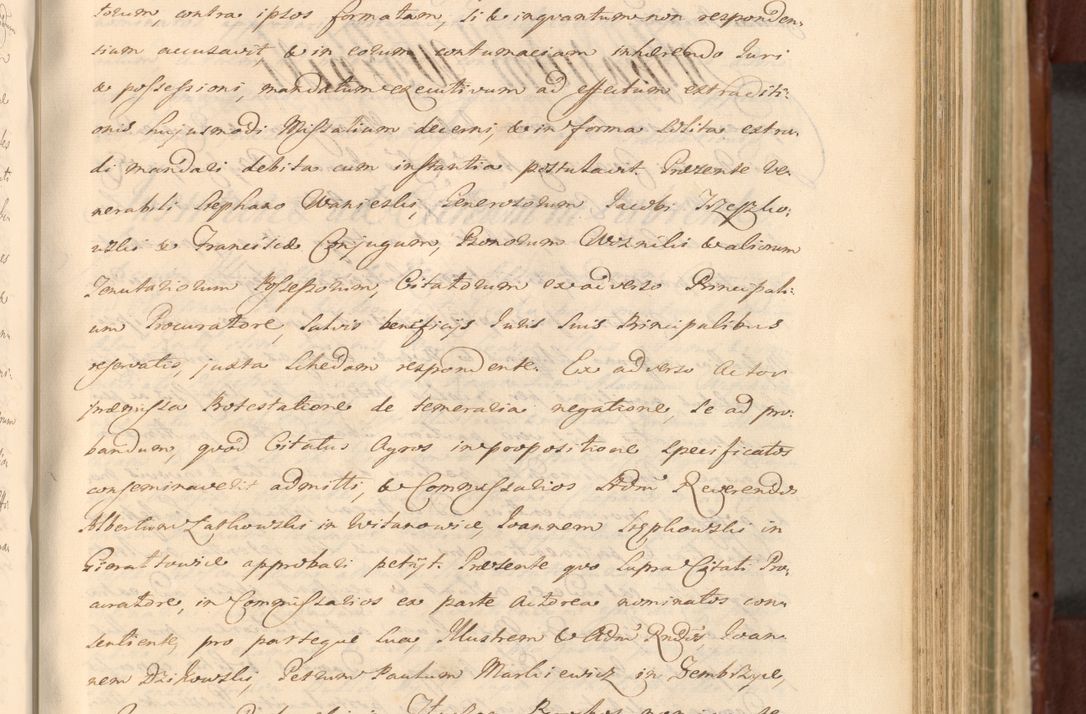 torum contra ipsos formatam, sibe inquantum non responden,
tium accusavit, & in eorum contumaciam inhærendo Juri
& possessioni, mandatum executivum ad effectum extraditi,
onis hujusmodi Missalium decerni, & in forma solita extra,
di mandari debita cum instantia postulavit. Præsente Ve,
nerabili Stephano Wanieski, Generosorum Jacobi
& Francisca Conjugum, Honorum & aliorum
Tenutariorum Possessorum, Citatorum ex adverso Principali,
um Procuratore, salvis beneficijs Juris suis Principalibus
reservatis, juxta Schedam respondente. Ex adverso Actor
præmissa Protestatione de temeraria negatione, se ad pro,
bandum, quod Citatus Agros in propositione specificatos
conseminaverit admitti, & Commissarios Adm. Reverendos
Albertum Zatkowski in Witanowice, Joannem Stępkowski in
Gierałtowice approbari petijt. Præsente quo supra Citati Pro,
curatore, in Commissarios ex parte Actorea nominatos con,
sentiente, pro parteque sua, Illustrem & Adm. Rndos Joan,
nem Dzikowski, Petrum Paulum Markiewicz in Zembrzyce,